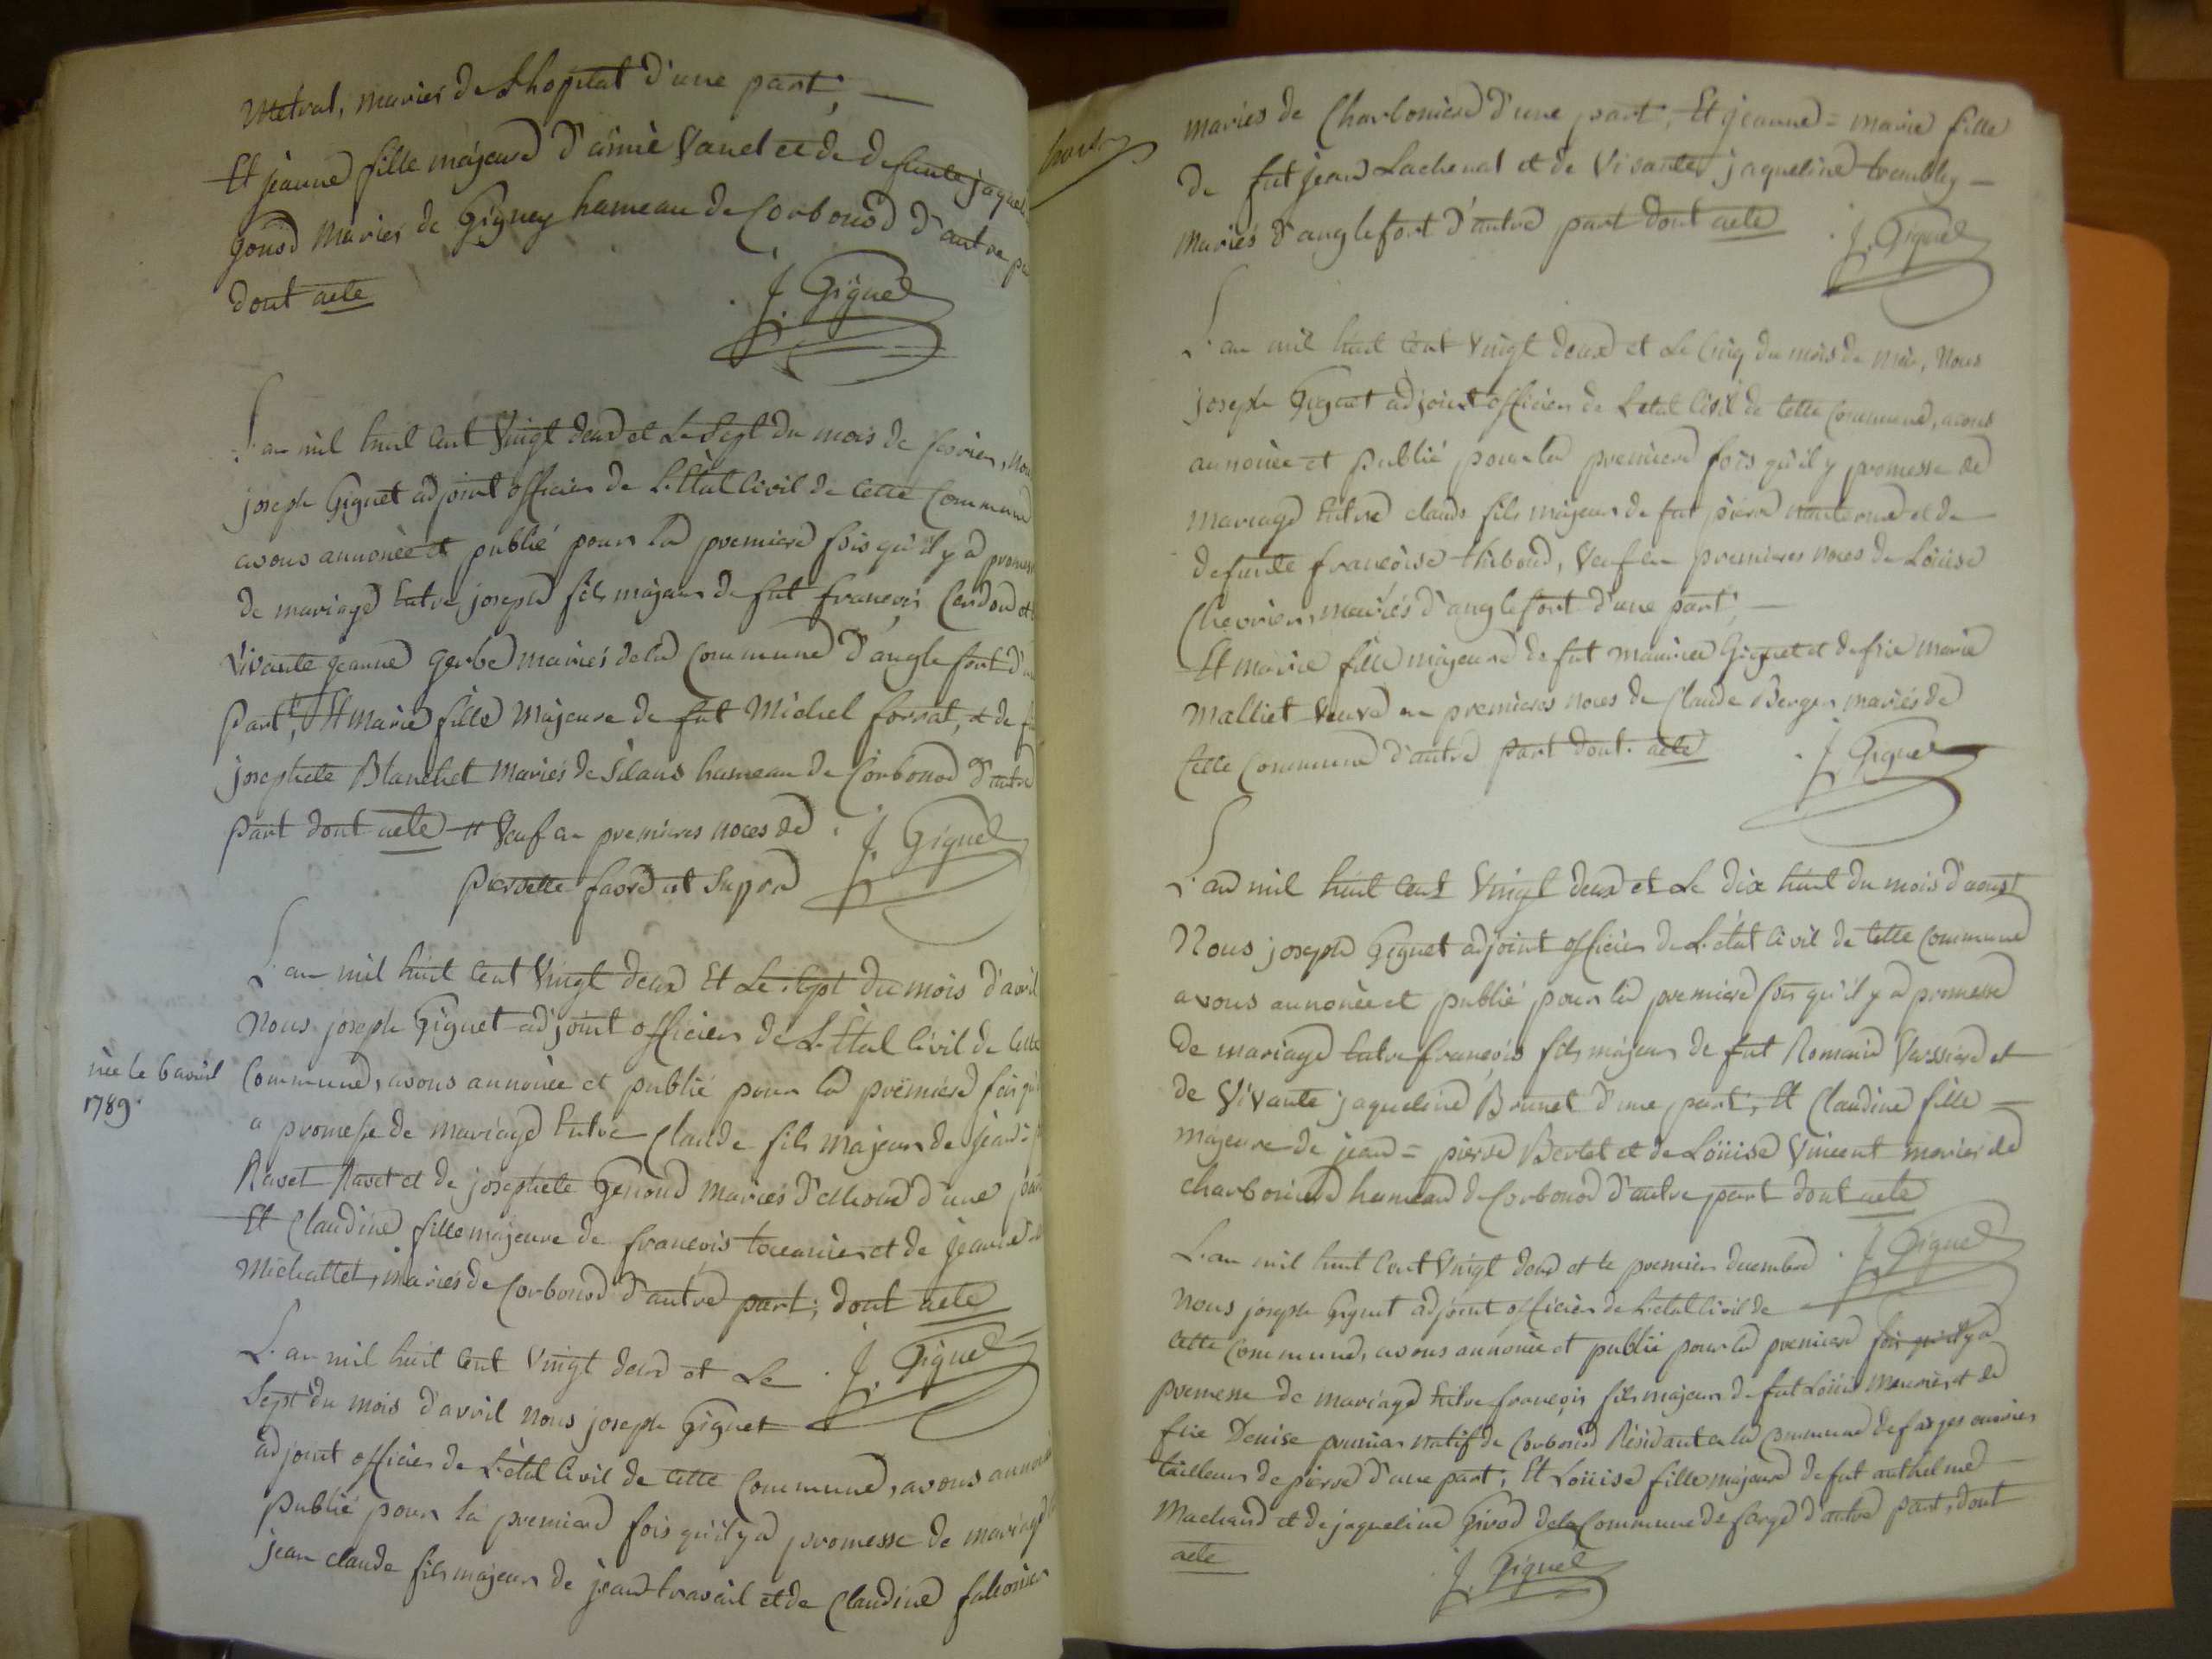 Metral, mariés de Lhopital d'une part; —
Et jeanne fille majeure d'aimé Vanel et de defunte jaquel
gonod mariés de Gigney hameau de Corbonod d'autre pa
dont acte
J. Giguet
L'an mil huit cent vingt deux et Le sept du mois de fevrier, nou
joseph Giguet adjoint officier de L'Etat Civil de cette Commune
avons annoncé et publié pour la premiere fois qu'il y a promess
de mariage Entre joseph fils majeur de fut françois Cardon et
vivante jeanne Gerbe mariés de la Commune d'anglefort d'u
part, # Et marie fille majeure de fut Michel forrat, et de f
josephete Blanchet mariés de Silans hameau de Corbonod d'autre
part dont acte # Veuf en premieres noces de
pierrette favre et Supra
J. Giguet
L'an mil huit cent vingt deux Et Le sept du mois d'avril
Nous joseph Giguet adjoint officier de L'Etat Civil de cette
née le 6 avril
1789.
Commune, avons annoncé et publié pour la premiere fois qu'
a promesse de mariage Entre Claude fils majeur de jean =
Ravet Ravet et de josephete Genoud mariés d'une par
Et Claudine fille majeure de françois et de jeanne
Michallet, mariés de Corbonod d'autre part; dont acte
J. Giguet
L'an mil huit cent vingt deux et Le
Sept du mois d'avril nous joseph Giguet
adjoint officier de L'état Civil de cette Commune, avons annoncé
publié pour la premiere fois qu'il y a promesse de mariage
jean claude fils majeur de jean travail et de Claudine falconier
mariés de Charboniere d'une part, Et jeanne = marie fille
de fut jean Lachenal et de Vivante jaqueline trembley —
mariés d'anglefort d'autre part dont acte
J. Giguet
L'an mil huit cent vingt deux et Le cinq du mois de mai, Nous
joseph Giguet adjoint officier de L'etat Civil de cette Commune, avons
annoncé et publié pour la premiere fois qu'il y promesse de
mariage Entre claude fils majeur de fut pierre et de
defunte françoise thiboud, Veuf en premieres noces de Loüise
Chevrier, mariés d'anglefort d'une part; —
Et marie fille majeure de fut maurice Giguet et de feüe marie
Malliet Veuve en premieres noces de Claude Berger mariés de
Cette Commune d'autre part dont acte
J. Giguet
L'an mil huit cent Vingt deux et Le dix huit du mois d'aoust
Nous joseph Giguet adjoint officier de L'état Civil de cette Commune
avons annoncé et publié pour la premiere fois qu'il y a promesse
de mariage Entre françois fils majeur de fut Romain Vassiere et
de Vivante jaqueline Brunet d'une part; Et Claudine fille —
majeure de jean = pierre Bertet et de Loüise Vincent mariés de
charboniere hameau de Corbonod d'autre part dont acte
J. Giguet
L'an mil huit cent vingt deux et le premier decembre
Nous joseph Giguet adjoint officier de L'etat Civil de
cette Commune, avons annoncé et publié pour la premiere fois qu'il y a
promesse de mariage Entre françois fils majeur de fut Loüis et de
feüe Denise natif de Corbonod Résidant a la Commune de farges ouvrier
tailleur de pierre d'une part; Et Loüise fille majeure de fut anthelme —
Machard et de jaqueline Girod de la Commune de farge d'autre part, dont
acte
J. Giguet